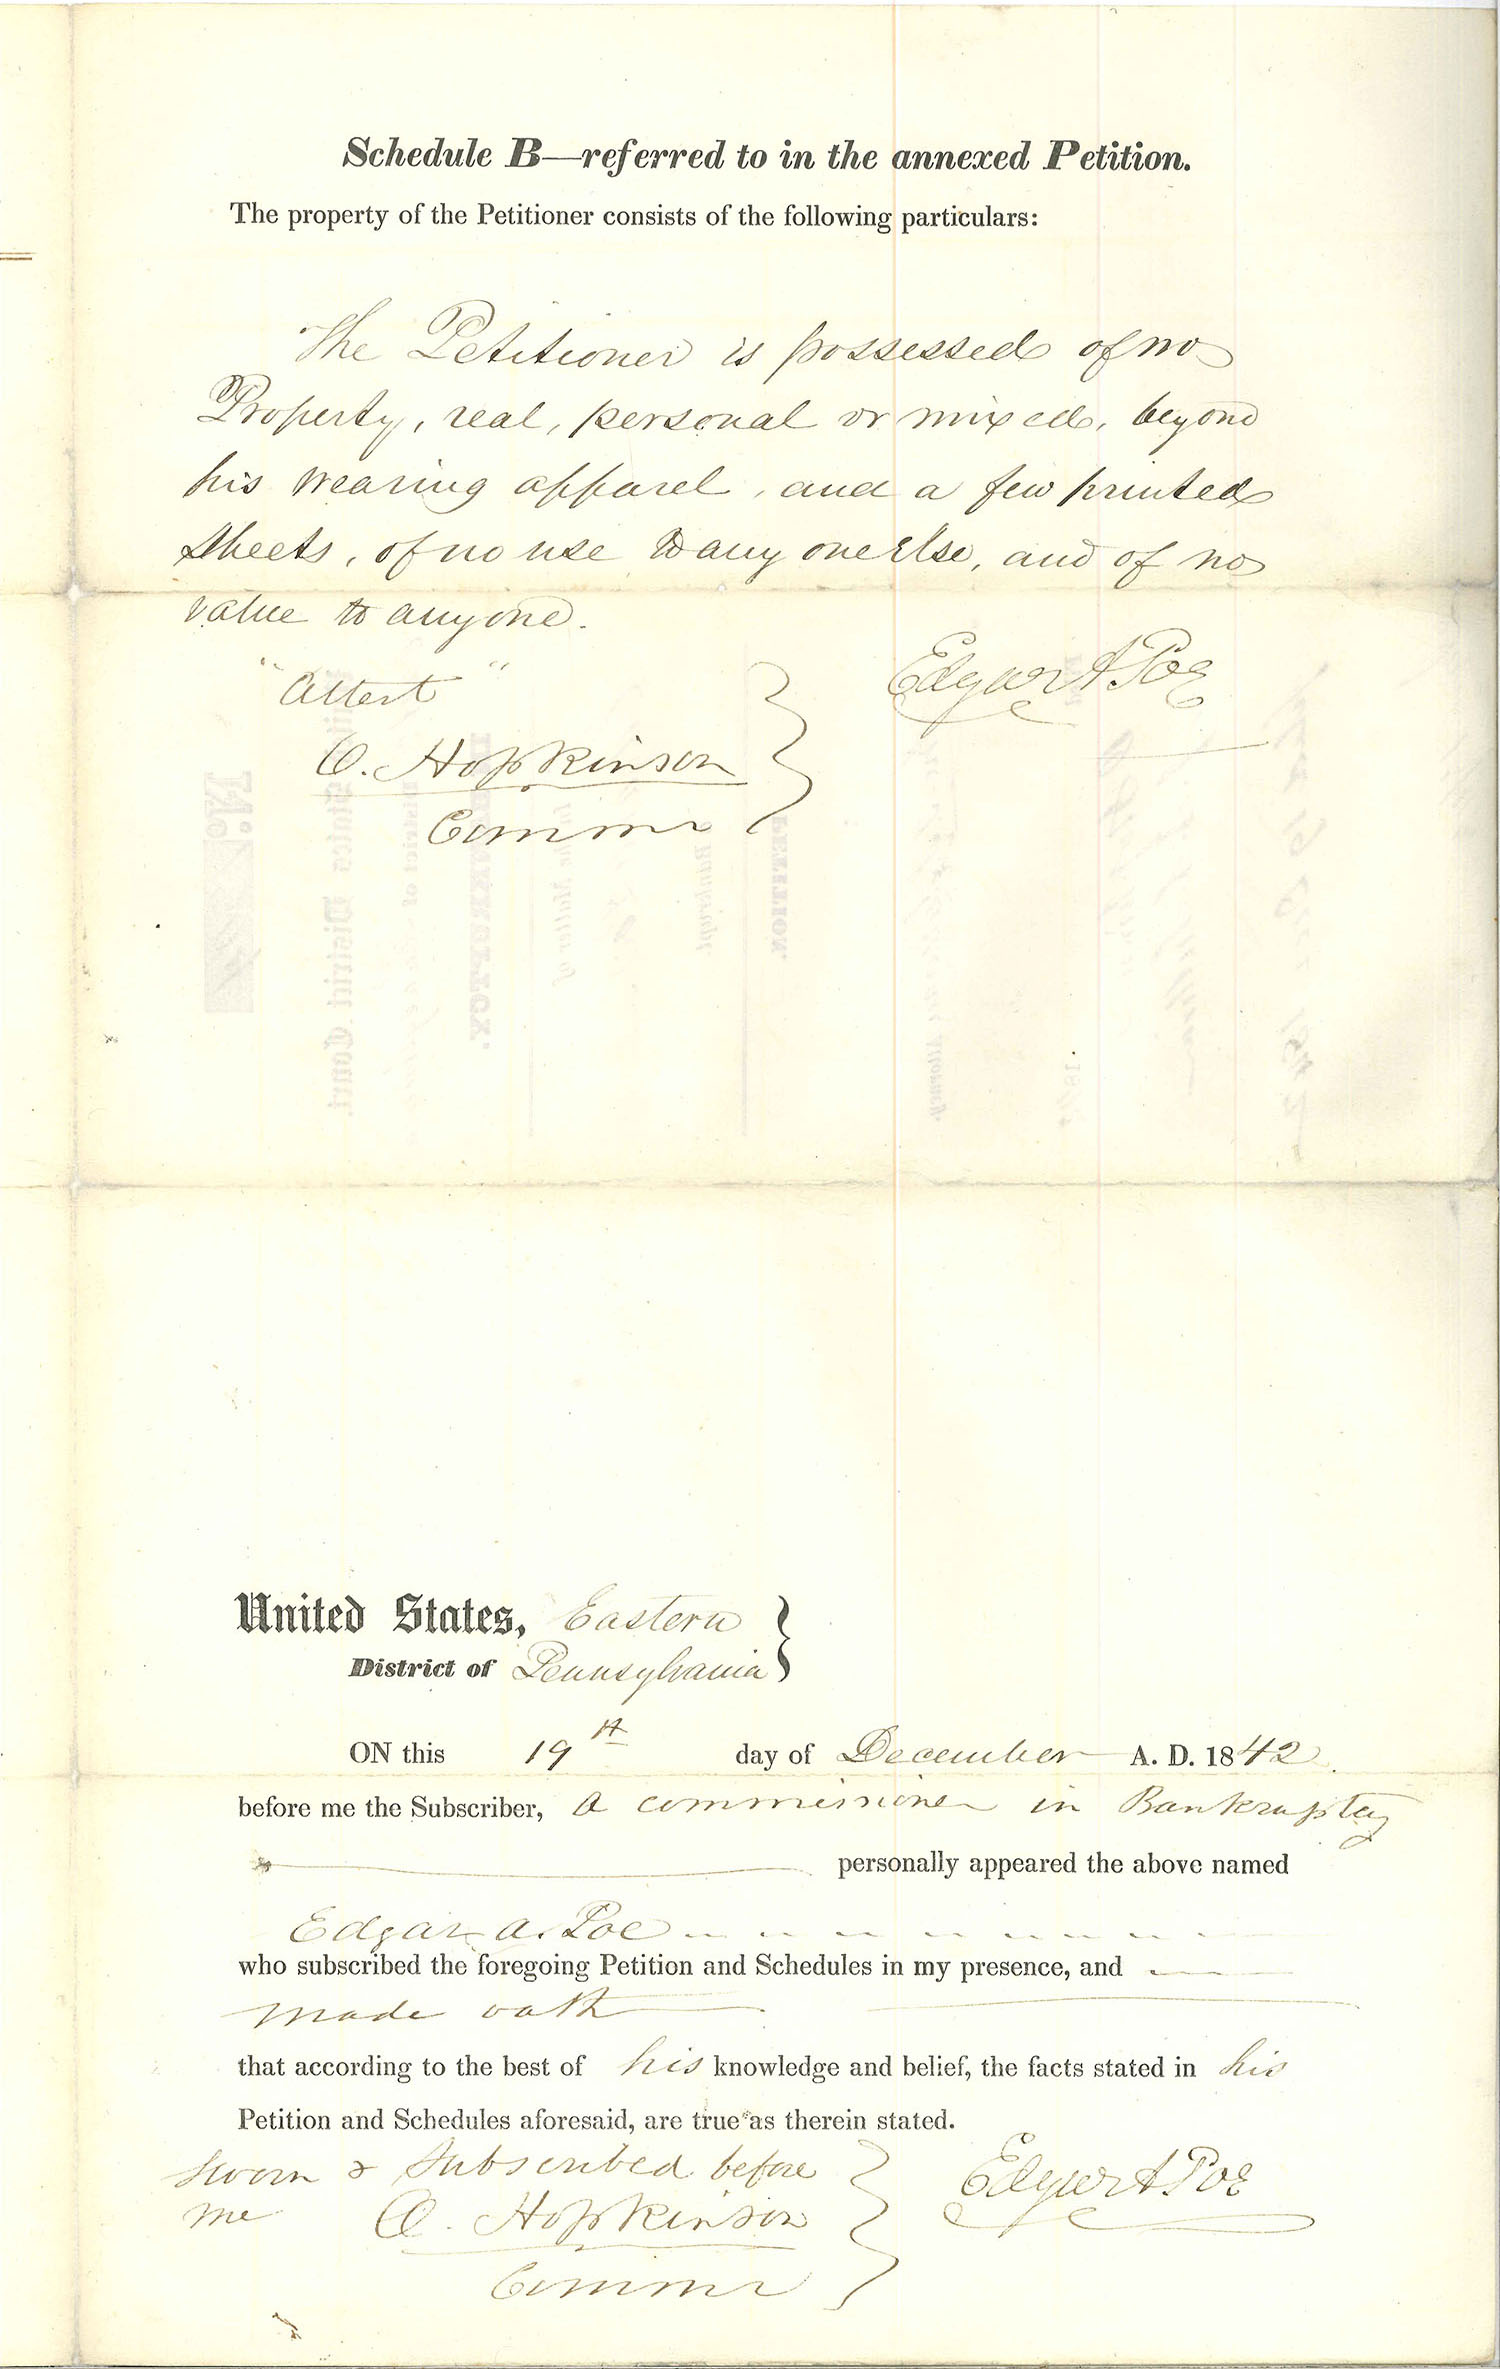 Schedule B—referred to in the annexed Petition.
The property of the Petitioner consists of the following particulars:
The Petitioner is possessed of no
Property, real, personal or mixed, beyond
his wearing apparel, and a few printed
sheets, of no use to any one else, and of no
value to anyone.
"Attest"
Edgar A Poe
O. Hopkinson
Commr
United States, Eastern
District of Pennsylvania
ON this 19th day of December A. D. 1842.
before me the Subscriber, a commissioner in Bankruptcy
personally appeared the above named
Edgar A. Poe
who subscribed the foregoing Petition and Schedules in my presence, and
made oath
that according to the best of his knowledge and belief, the facts stated in his
Petition and Schedules aforesaid, are true as therein stated.
Sworn & Subscribed before
me O. Hopkinson
Edgar A Poe
Commr